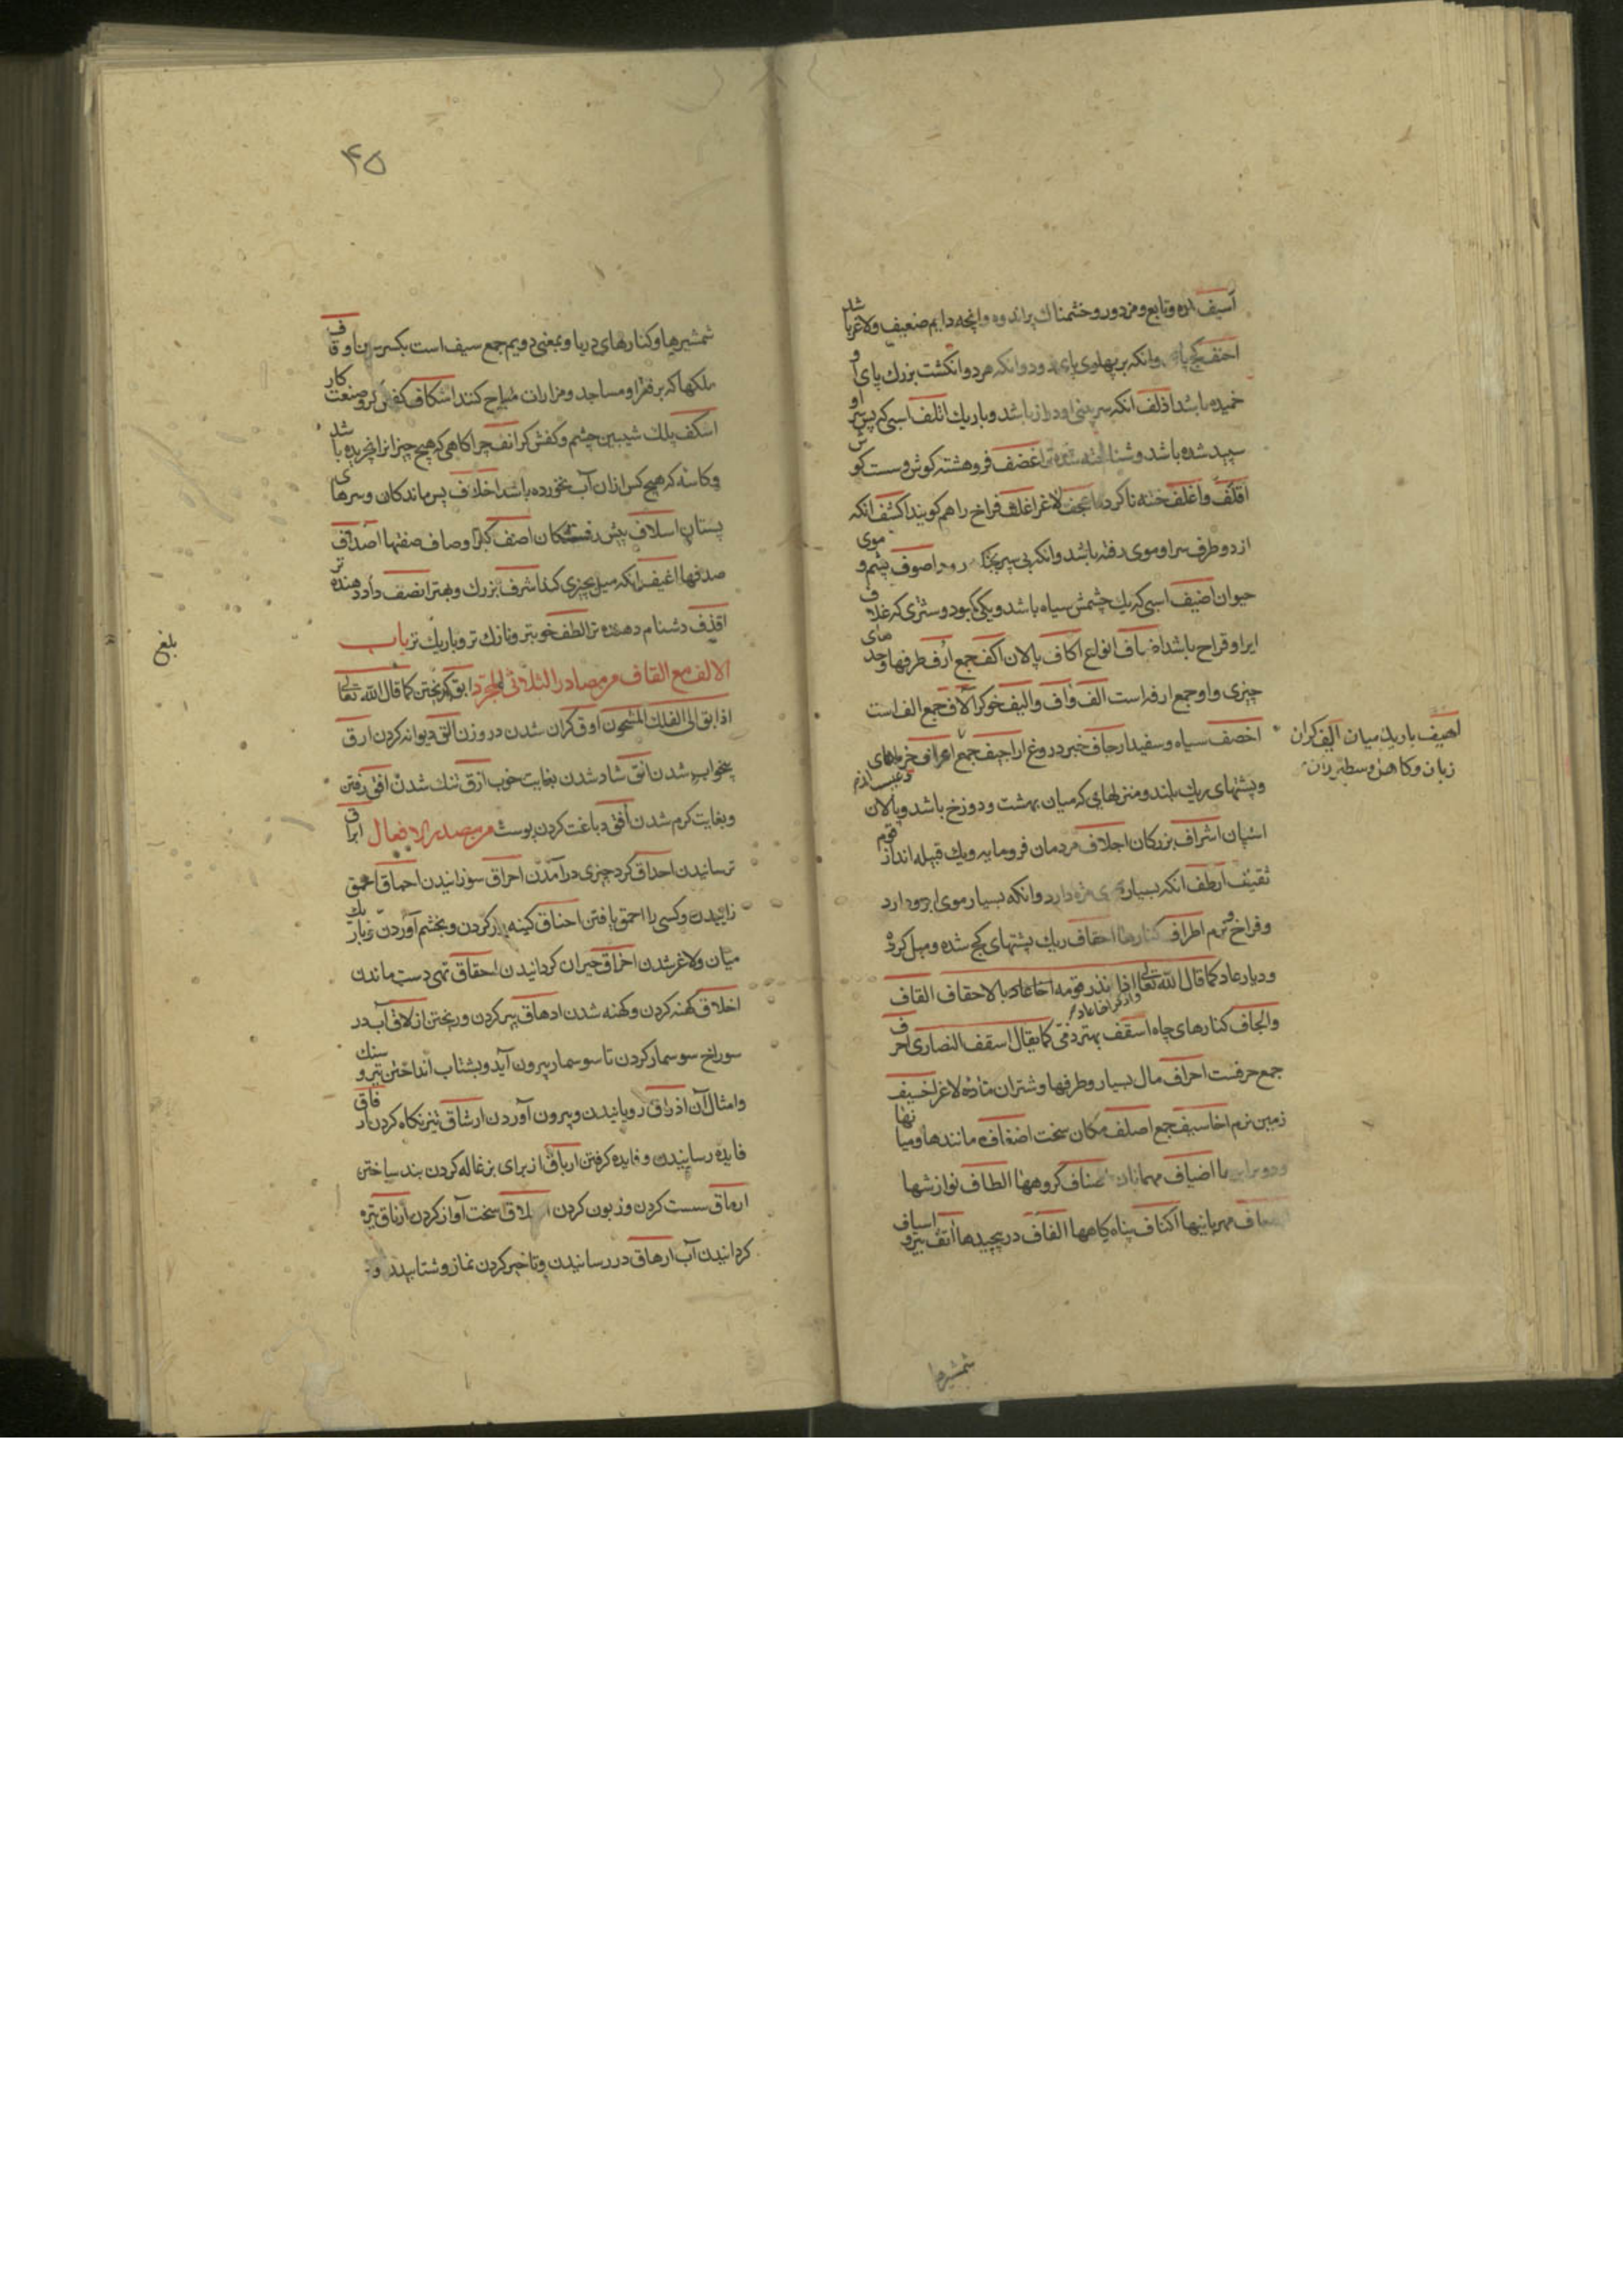 اسیف بنده و تابع و مزدور و خشمناك پر اندوه و انچه دایم ضعیف و لاغر باشد
احنف کج پا و انکه بر پهلوی پای رود و انکه هر دو انکشت بزرك پای او
خمیده باشد اذلف انکه سر بینی او دراز باشد و باریك اتلف اسبی که پس سر او
سپید شده باشد و شناخته شده تر اغضف فرو هشته کوش و سست کوش
اقلف و اغلف ختنه ناکرده اعجف لاغر اغلف فراخ را هم کویند اکشف انکه
از دو طرف سر او موی رفته باشد و انکه بی سپر بجنك رود اصوف پشم و موی
حیوان اخیف اسبی که یك چشمش سیاه باشد و یکی کبود و شتری که غلاف
ایر او فراخ باشد اصناف انواع اکاف پالان اکف جمع ارف طرفها و حدهای
چیزی و او جمع ارفه است الف و آلف و الیف خوکر آلاف جمع الف است
اخصف سیاه و سفید ارجاف خبر دروغ اراجیف جمع اعراف خرماهای
و پشتهای ریك بلند و منزلهائی که میان بهشت و دوزخ باشد و پالان
اسپان اشراف بزرکان اجلاف مردمان فرومایه و یك قبیله انداز قوم
ثقیف اوطف انکه بسیار موی مژه دارد و انکه بسیار موی ابرو دارد
و فراخ و نرم اطراف کنارها احقاف ریك پشتهای کج شده و میل کرده
و دیار عاد کما قال الله تعالی اذ انذر قومه اخا عاد بالاحقاف القاف
واذکر اخا عاد
و الجاف کنارهای چاه اسقف بهتر دفی کما یقال اسقف النصاری احرف
جمع حرفست احراف مال بسیار و طرفها و شتران ماده لاغر اخسیف
زمین نرم اخاسیف جمع اصلف مکان سخت اضعاف مانندها و میانها
و دو برابرها اضیاف مهمانان اصناف کروهها الطاف نوازشها
مهربانیها اکناف پناه کاهها الفاف درپیچیدها اسیاف
شمشیرها
اهیف باریك میان الیف کران
زبان و کاهل و سطبر ران
۴۵
شمشیرها و کنارهای دریا و بمعنی دویم جمع سیف است بکسر سین اوقاف
ملکها که بر فقرا و مساجد و مزارات مباح کنند اشکاف کفش کر و صنعت کار
اسکف پلك شیبین چشم و کفش کر انف چراکاهی که هیچ چیز انرا نچریده باشد
و کاسه که هیچ کس ازان آب نخورده باشد اخلاف پس ماندکان و سرهای
پستان اسلاف پیش رفتکان اصنف کبر اوصاف صفتها اصداف
صدفها اغیف انکه میل بچیزی کند اشرف بزرك و بهتر انصف داد دهنده تر
اقذف دشنام دهنده تر الطف خوبتر و نازك تر و باریك تر باب
الالف مع القاف من مصادر الثلاثی المجرد ابق کریختن کما قال الله تعالی
اذ ابق الی الفلك المشحون اوق کران شدن در وزن الق دیوانه کردن ارق
بیخواب شدن انق شاد شدن بغایت خوب ازق تنك شدن افق رفتن
و بغایت کرم شدن افق دباغت کردن پوست من مصدر الافعال ابراق
ترسانیدن احداق کرد چیزی درآمدن احراق سوزانیدن احماق احمق
زاییدن و کسی را احمق یافتن احناق کینه ور کردن و بخشم آوردن و باریك
میان و لاغر شدن اخراق حیران کردانیدن احقاق تهی دست ماندن
اخلاق کهنه کردن و کهنه شدن ادهاق پر کردن و ریختن ازلاق آب در
سوراخ سوسمار کردن تا سوسمار بیرون آید و بشتاب انداختن تیر و سنك
و امثال آن اذراق رویانیدن و بیرون آوردن ارشاق تیز نکاه کردن ارفاق
فایده رسانیدن و فایده کرفتن ارباق از برای بزغاله کردن بند ساختن
ارماق سست کردن و زبون کردن سخت آواز کردن ارناق تیره
کردانیدن آب ارهاق در رسانیدن و تاخیر کردن نماز و
بلغ